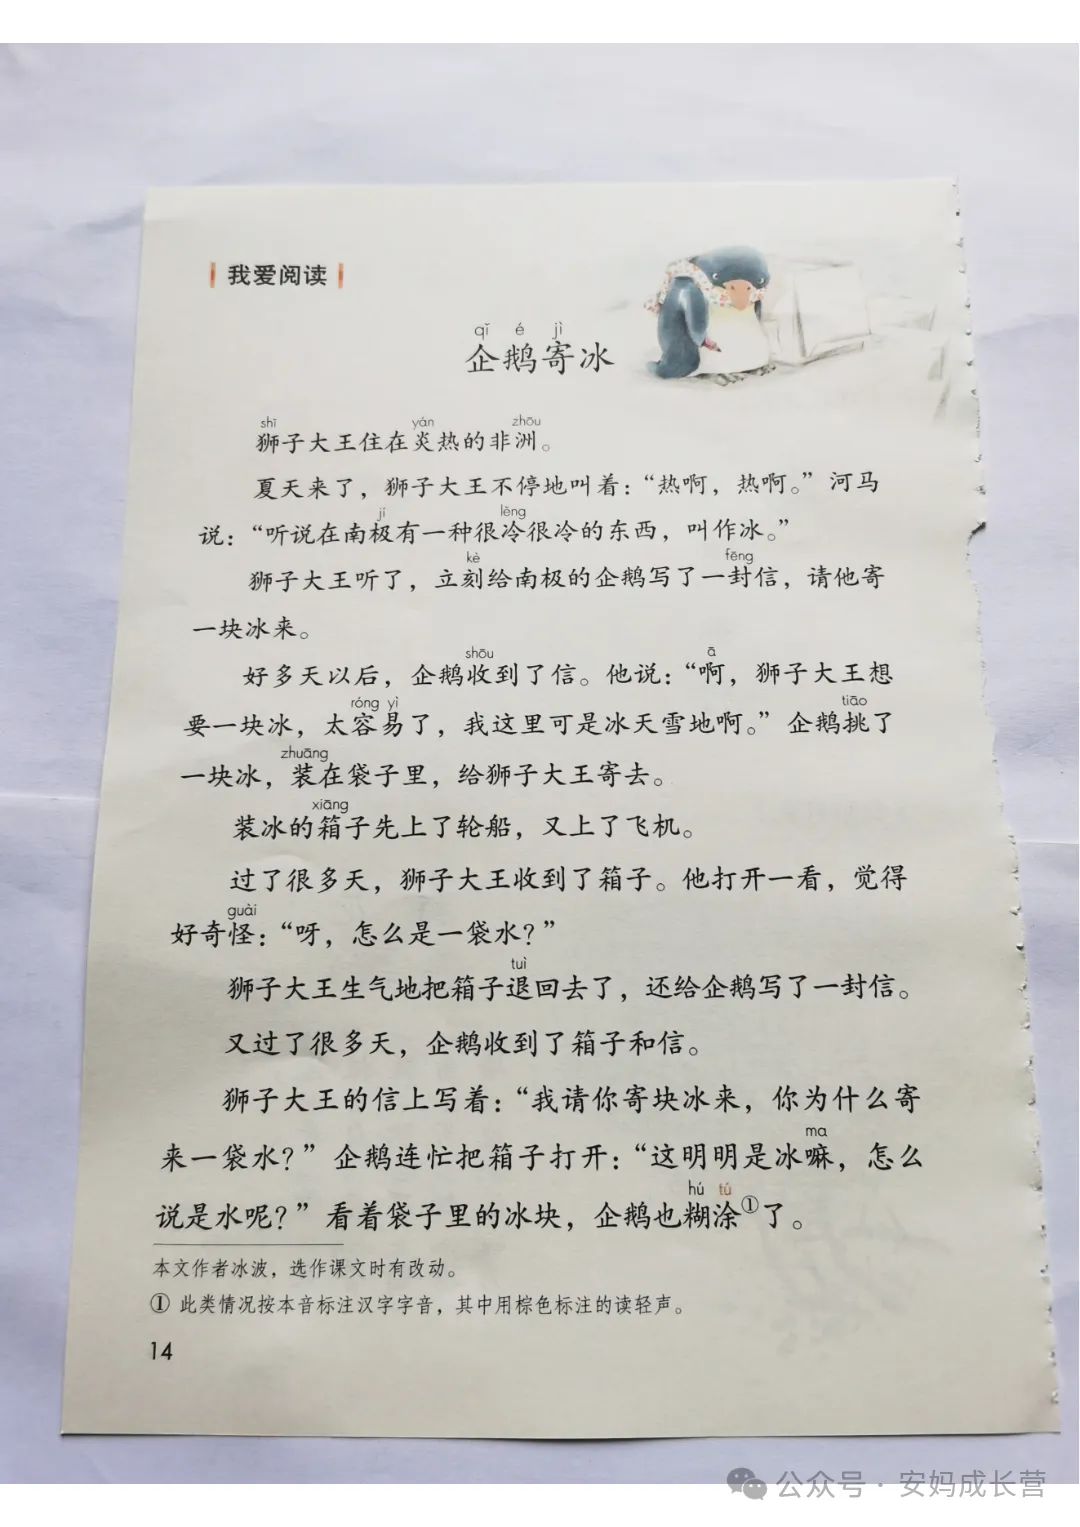 我爱阅读
qǐ é jì
企鹅寄冰
shī yán zhōu
狮子大王住在炎热的非洲。
夏天来了，狮子大王不停地叫着：“热啊，热啊。”河马
jí lěng
说：“听说在南极有一种很冷很冷的东西，叫作冰。”
kè fēng
狮子大王听了，立刻给南极的企鹅写了一封信，请他寄
一块冰来。
shōu ā
好多天以后，企鹅收到了信。他说：“啊，狮子大王想
róng yì tiāo
要一块冰，太容易了，我这里可是冰天雪地啊。”企鹅挑了
zhuāng
一块冰，装在袋子里，给狮子大王寄去。
xiāng
装冰的箱子先上了轮船，又上了飞机。
过了很多天，狮子大王收到了箱子。他打开一看，觉得
guài
好奇怪：“呀，怎么是一袋水？”
tuì
狮子大王生气地把箱子退回去了，还给企鹅写了一封信。
又过了很多天，企鹅收到了箱子和信。
狮子大王的信上写着：“我请你寄块冰来，你为什么寄
ma
来一袋水？”企鹅连忙把箱子打开：“这明明是冰嘛，怎么
hú tú
说是水呢？”看着袋子里的冰块，企鹅也糊涂①了。
本文作者冰波，选作课文时有改动。
① 此类情况按本音标注汉字字音，其中用棕色标注的读轻声。
14
公众号·安妈成长营